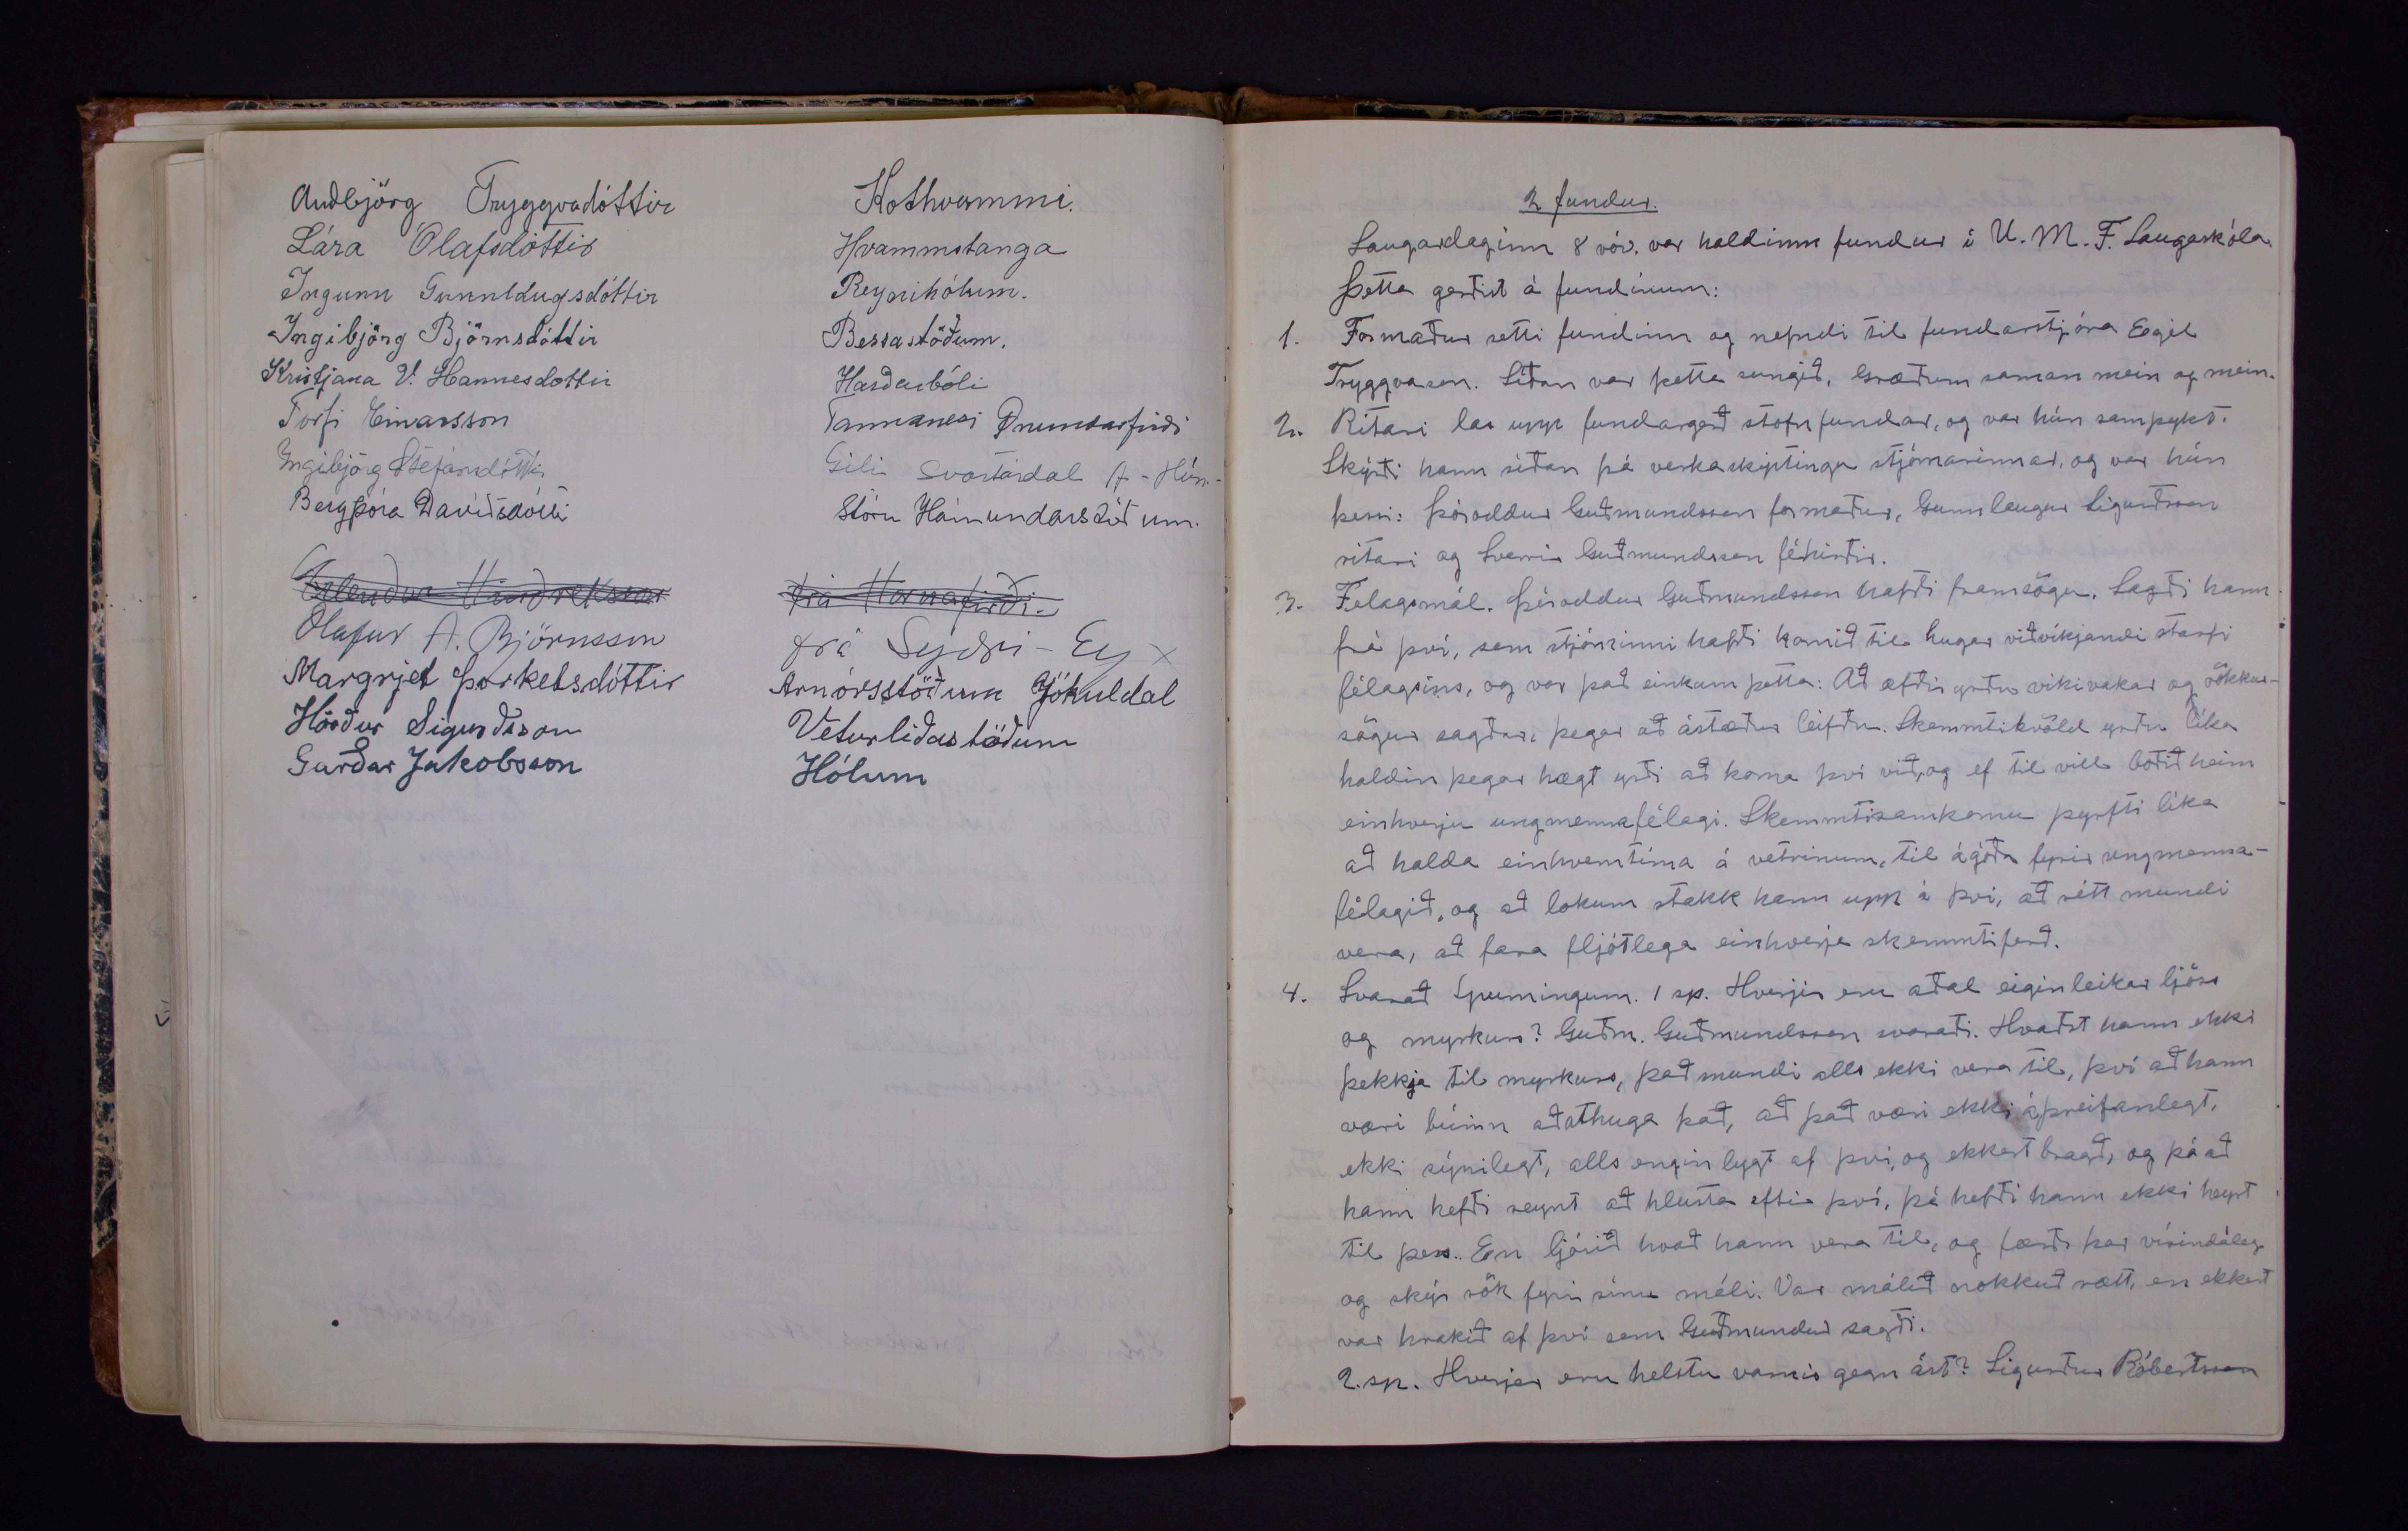 Auðbjörg Tryggvadóttir Kothvammi.
Lára Ólafsdóttir Hvammstanga
Ingunn Gunnlaugsdóttir Reynihólum.
Ingibjörg Björnsdóttir Bessastöðum.
Kristjana V. Hannesdottir Harðarbóli
Torfi Einarsson Tannanesi Önundarfirði
Ingibjörg Stefánsdóttir Gili Svartárdal A-Hún-
Bergþóra Davíðsdóttir Stóru Hámundarstöðum.
Erlendur Hindreksson frá Hornafirði.
Ólafur A. Björnsson frá Syðri-Ey x
Margrjet Þorkelsdóttir Arnórsstöðum Jökuldal
Hörður Sigurðsson Veturliðastöðum
Garðar Jakobsson Hólum
2 fundur.
Laugardaginn 8 nóv. var haldinn fundur í U.M.F. Laugaskóla
Þetta gerðist á fundinum:
1. Formaður setti fundinn og nefndi til fundarstjóra Egil
Tryggvason. Síðan var þetta sungið, Græðum saman mein og mein.
2. Ritari las upp fundargerð stofnfundar, og var hún samþykt.
Skýrði hann síðan frá verkaskiptingu stjórnarinnar, og var hún
þessi: Þóroddur Guðmundsson formaður, Gunnlaugur Sigurðsson
ritari og Sverrir Guðmundsson féhirðir.
3. Felagsmál. Þóroddur Guðmundsson hafði framsögu. Sagði hann
frá því, sem stjórninni hafði komið til hugar viðvíkjandi starfi
félagsins, og var það einkum þetta: Að æfðir yrðu vikivakar og rökkur-
sögur sagðar, þegar að ástæður leifðu. Skemmtikvöld yrðu líka
haldin þegar hægt yrði að koma því við, og ef til vill boðið heim
einhverju ungmennafélagi. Skemmtisamkomu þyrfti líka
að halda einhverntíma á vetrinum, til ágóða fyrir ungmenna-
félagið, og að lokum stakk hann upp á því, að rétt mundi
vera, að fara fljótlega einhverja skemmtiferð.
4. Svarað spurningum. 1 sp. Hverjir eru aðal eiginleikar ljóss
og myrkurs? Guðm. Guðmundsson svaraði. Hvaðst hann ekki
þekkja til myrkurs, það mundi alls ekki vera til, því að hann
væri búinn að athuga það, að það væri ekki áþreifanlegt,
ekki sýnilegt, alls engin lygt af því, og ekkert bragð, og þá að
hann hefði reynt að hlusta eftir því, þá hefði hann ekki heyrt
til þess. En ljósið hvað hann vera til, og færði þar vísindaleg
og skýr rök fyrir sínu máli. Var málið nokkuð rætt, en ekkert
var hrakið af því sem Guðmundur sagði.
2. sp. Hverjar eru helstu varnir gegn ást? Sigurður Róbertsson